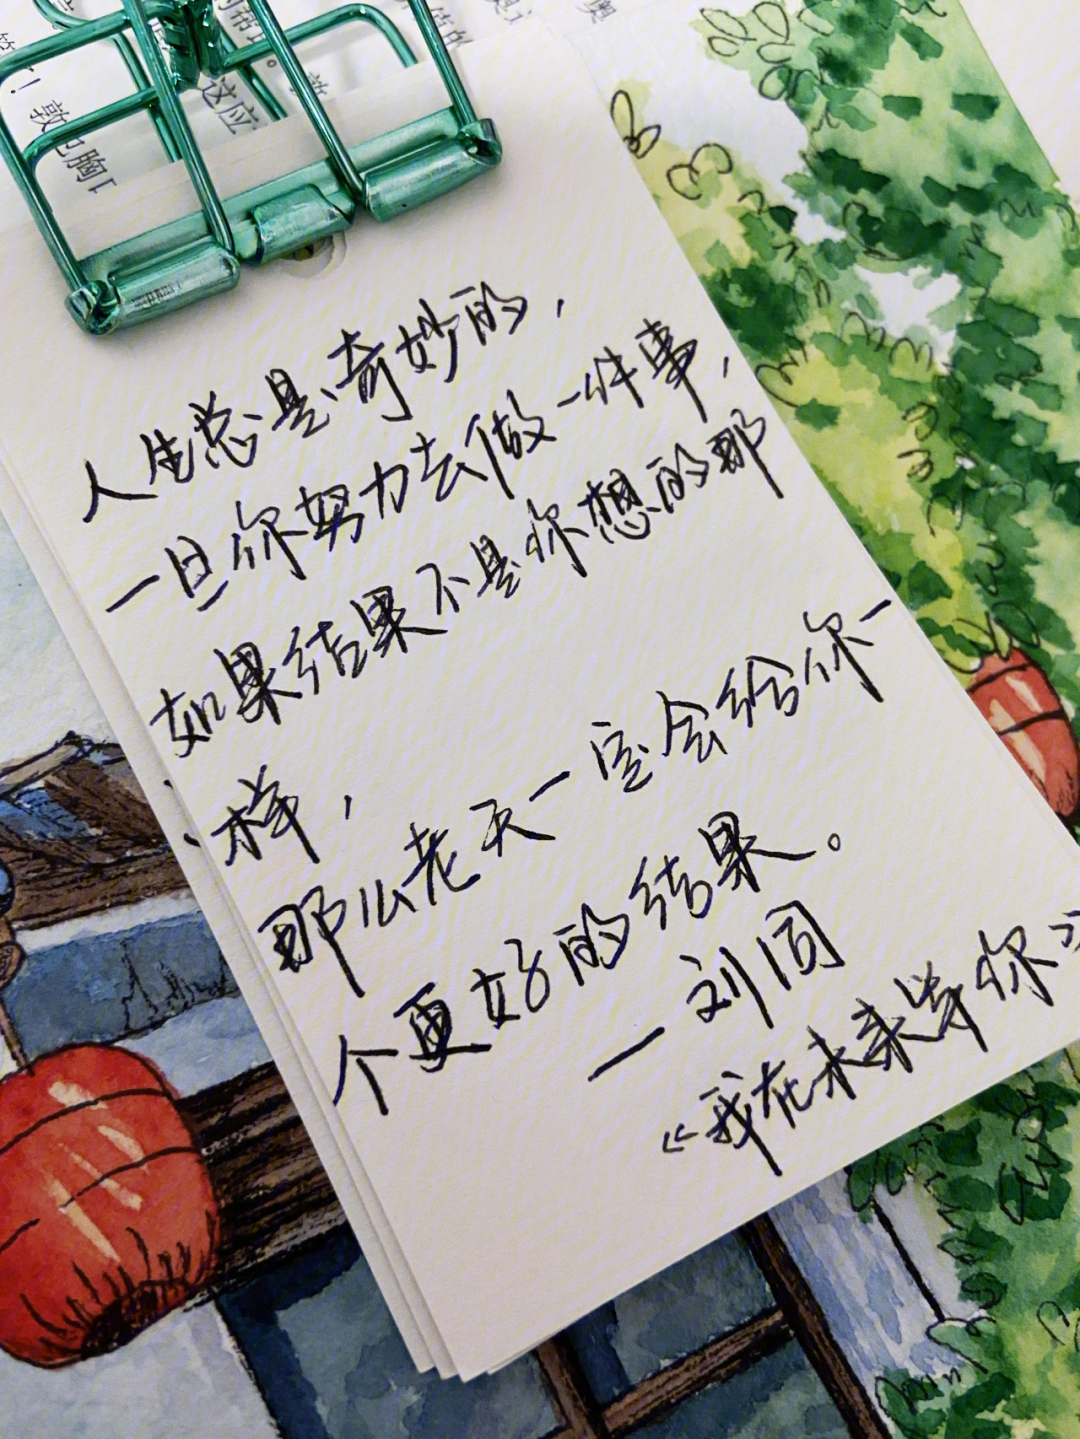 人生总是奇妙的，
一旦你努力去做一件事，
如果结果不是你想的那
样，
那么老天一定会给你一
个更好的结果。
—刘同
《我在未来等你》